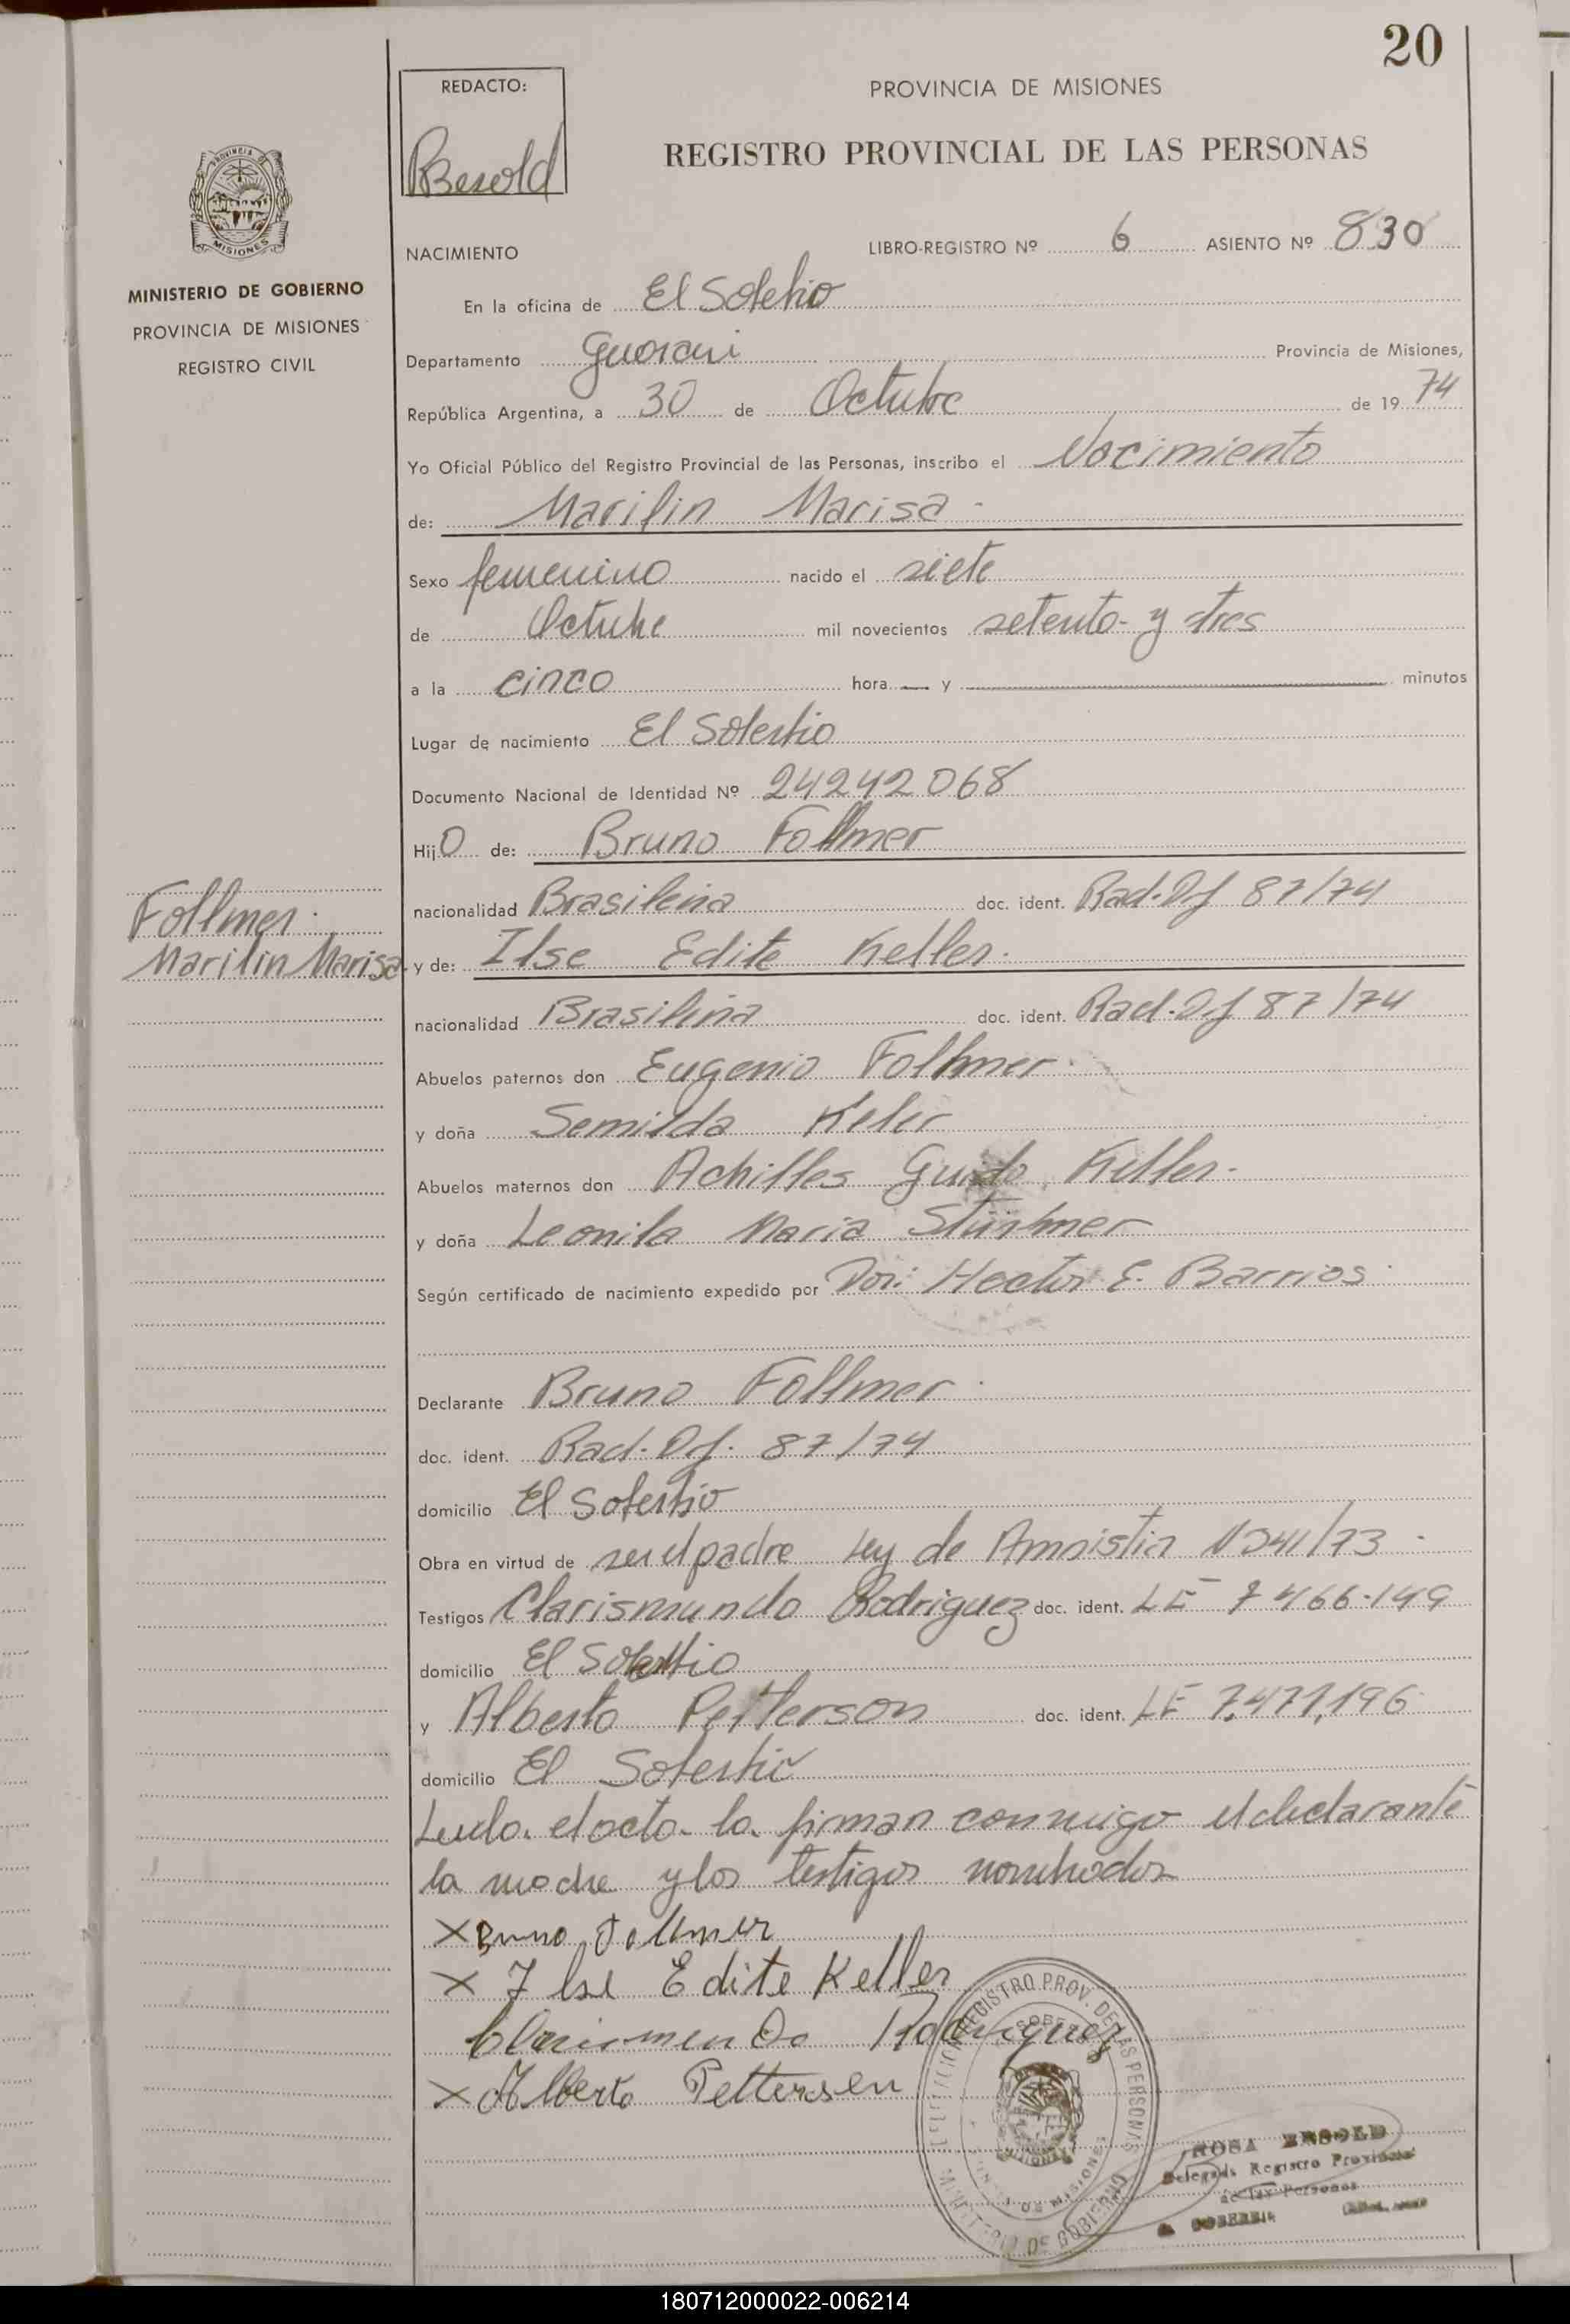 20
REDACTO:
Besold
PROVINCIA DE MISIONES
REGISTRO PROVINCIAL DE LAS PERSONAS
PROVINCIA DE
MISIONES
MINISTERIO DE GOBIERNO
PROVINCIA DE MISIONES
REGISTRO CIVIL
NACIMIENTO
LIBRO-REGISTRO Nº 6 ASIENTO Nº 830
En la oficina de El Soberbio
Departamento Guarani Provincia de Misiones,
República Argentina, a 30 de Octubre de 1974
Yo Oficial Público del Registro Provincial de las Personas, inscribo el Nacimiento
de: Marilin Marisa -
Sexo femenino nacido el siete
de Octubre mil novecientos setenta y tres
a la cinco hora — y — minutos
Lugar de nacimiento El Soberbio
Documento Nacional de Identidad Nº 24242068
HijO de: Bruno Follmer
nacionalidad Brasileña doc. ident. Rad. Df 87/74
Follmer.
Marilin Marisa.
y de: Ilse Edite Keller.
nacionalidad Brasileña doc. ident. Rad. Df 87/74
Abuelos paternos don Eugenio Follmer.
y doña Semilda Keler
Abuelos maternos don Achilles Guido Keller.
y doña Leonila Maria
Según certificado de nacimiento expedido por Dor: Hector E. Barrios
Declarante Bruno Follmer
doc. ident. Rad. Df. 87/74
domicilio El Soberbio
Obra en virtud de ser el padre Ley de Amnistia
Testigos Clarismundo Rodriguez doc. ident. LE 7466.149
domicilio El Soberbio
y Alberto Petterson doc. ident. LE 7.471.196
domicilio El Soberbio
Leida el acta la firman conmigo el declarante
la madre y los testigos nombrados
X Bruno Follmer
X Ilse Edite Keller
Clarismundo Rodriguez
X Alberto Pettersen
REGISTRO PROV. DE LAS PERSONAS
MINISTERIO DE GOBIERNO
ROSA BESOLD
Delegada Registro Provincial
de las Personas
180712000022-006214